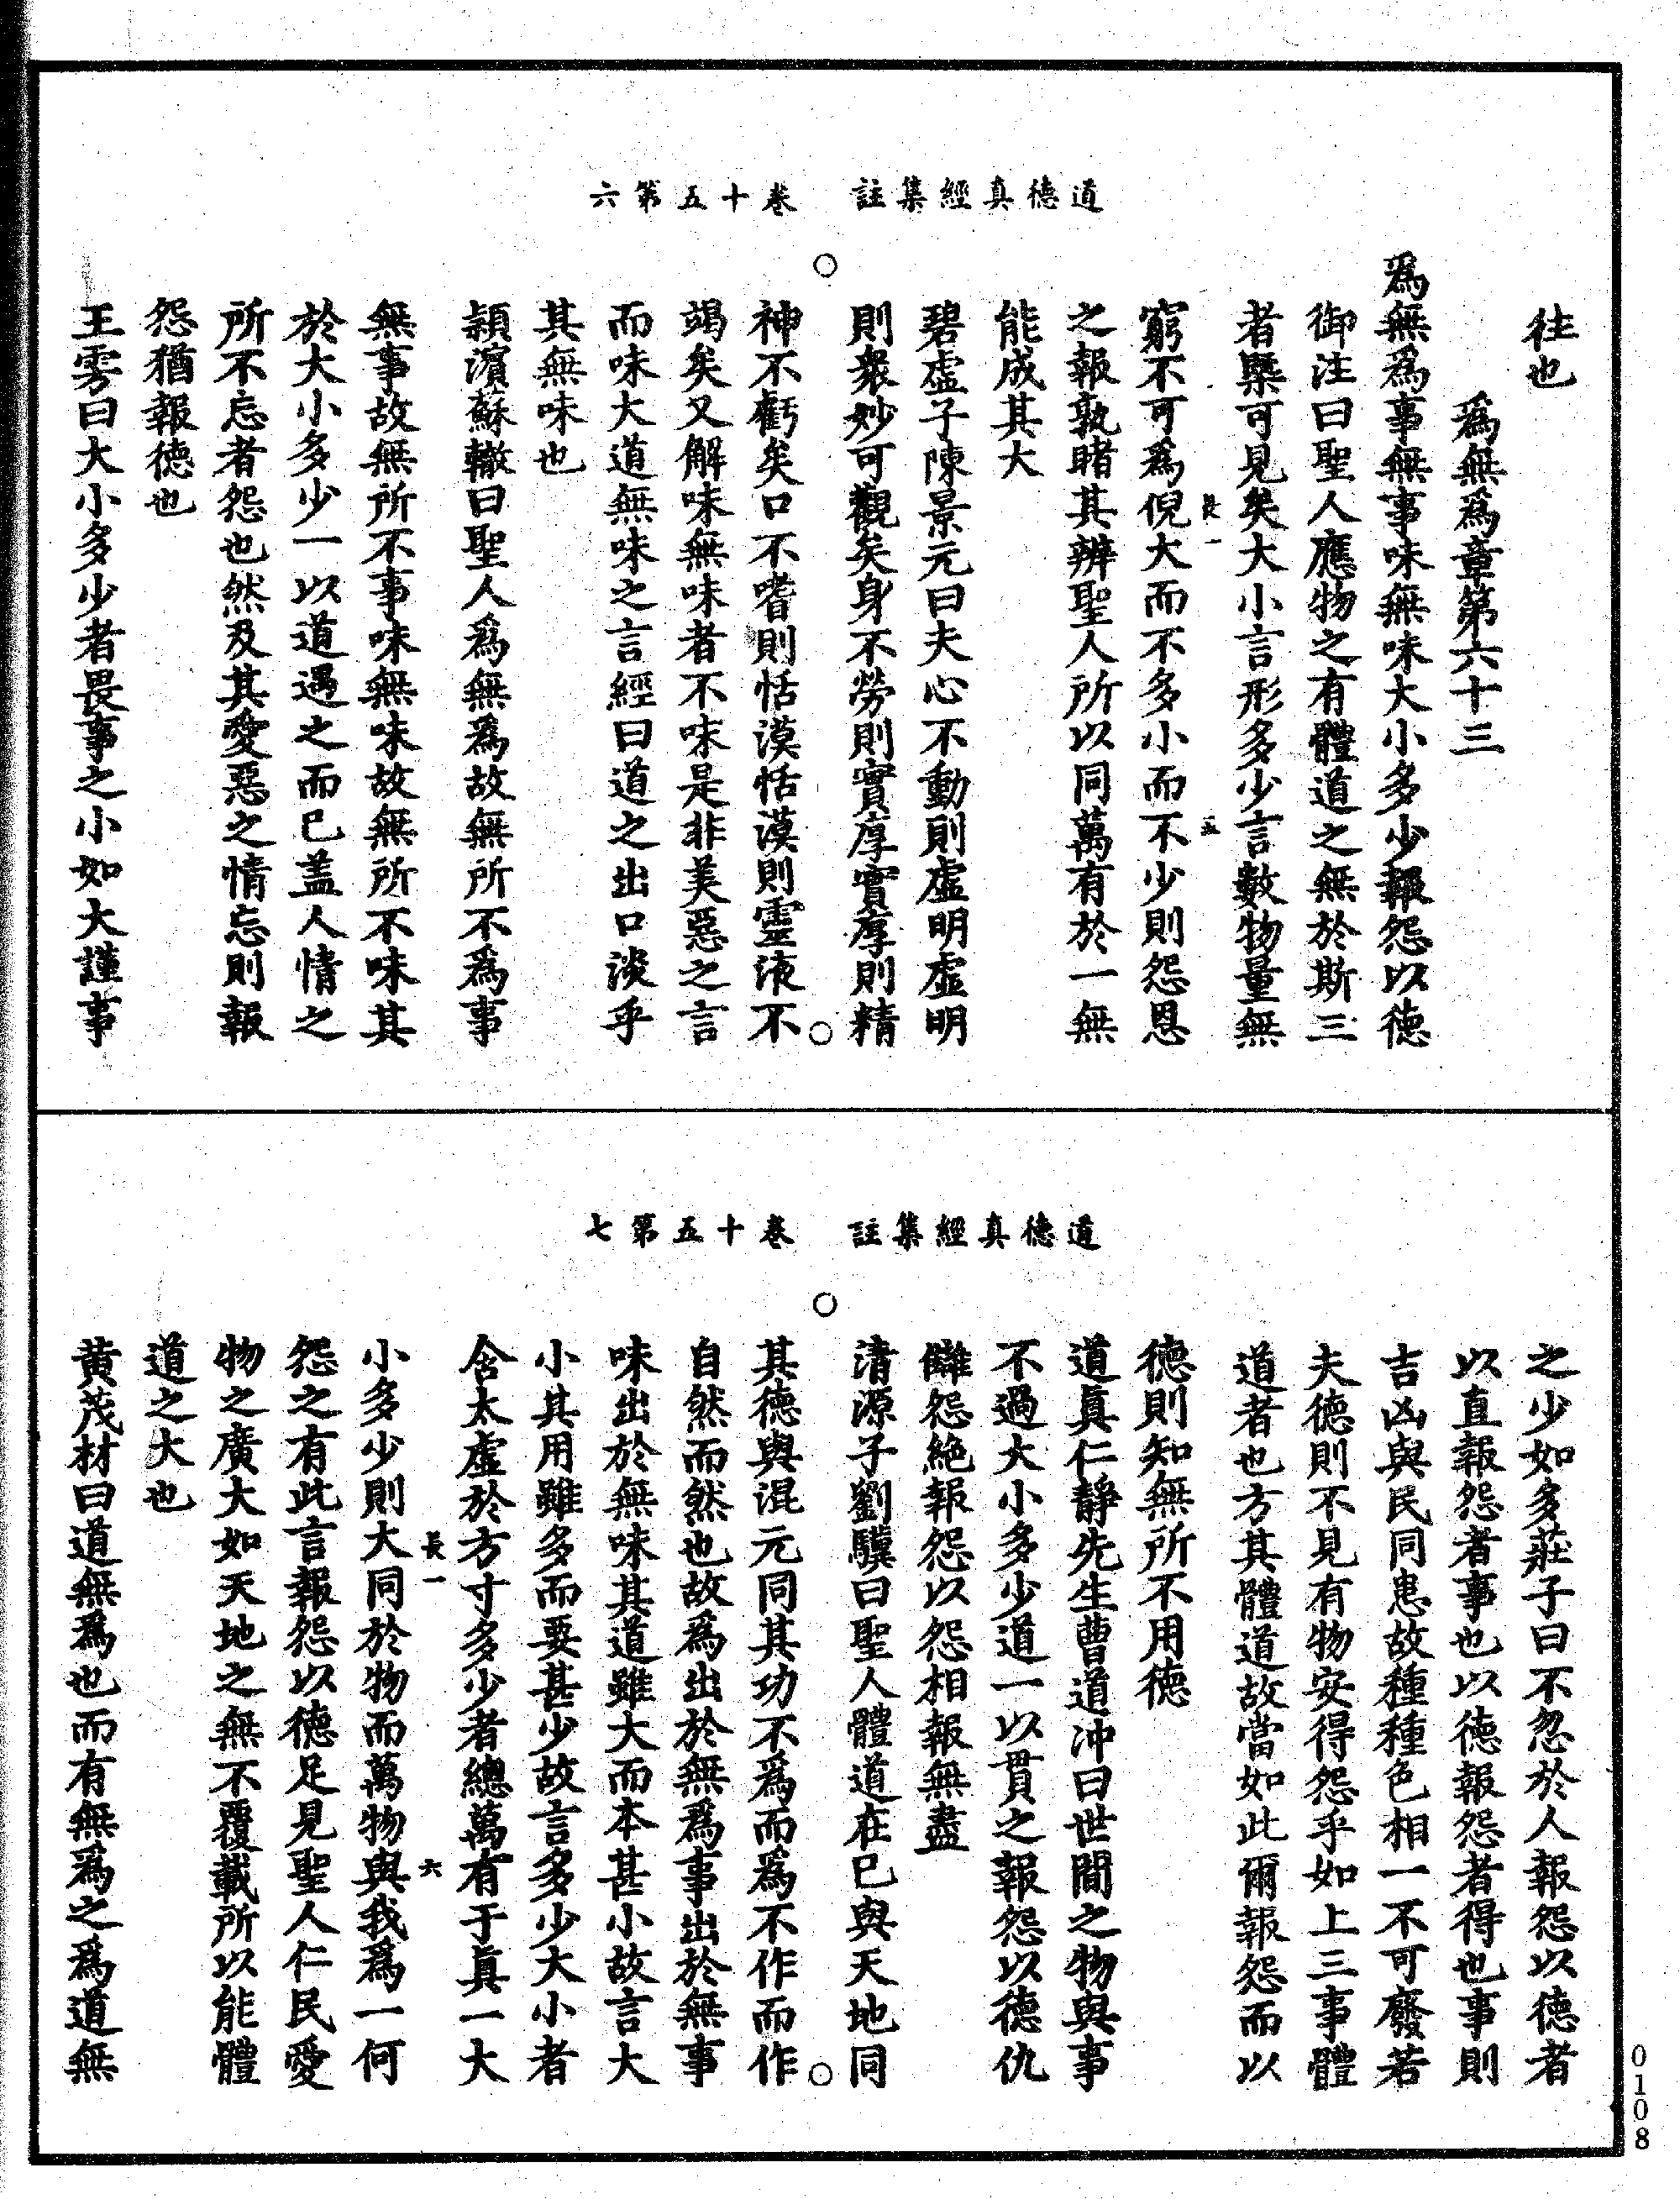 道德真經集註　卷十五第六
往也
爲無爲章第六十三
爲無爲事無事味無味大小多少報怨以德
御注曰聖人應物之有體道之無於斯三
者槩可見矣大小言形多少言數物量無
長一
五
窮不可爲倪大而不多小而不少則怨恩
之報孰睹其辨聖人所以同萬有於一無
能成其大
碧虛子陳景元曰夫心不動則虛明虛明
則衆妙可觀矣身不勞則實厚實厚則精
神不虧矣口不嗜則恬漠恬漠則靈液不
竭矣又解味無味者不味是非美惡之言
而味大道無味之言經曰道之出口淡乎
其無味也
頴濵蘇轍曰聖人爲無爲故無所不爲事
無事故無所不事味無味故無所不味其
於大小多少一以道遇之而已盖人情之
所不忘者怨也然及其愛惡之情忘則報
怨猶報德也
王雱曰大小多少者畏事之小如大謹事
道德真經集註　卷十五第七
之少如多莊子曰不忽於人報怨以德者
以直報怨者事也以德報怨者得也事則
吉凶與民同患故種種色相一不可廢若
夫德則不見有物安得怨乎如上三事體
道者也方其體道故當如此爾報怨而以
德則知無所不用德
道眞仁靜先生曹道冲曰世間之物與事
不過大小多少道一以貫之報怨以德仇
讎怨絶報怨以怨相報無盡
清源子劉驥曰聖人體道在已與天地同
其德與混元同其功不爲而爲不作而作
自然而然也故爲出於無爲事出於無事
味出於無味其道雖大而本甚小故言大
小其用雖多而要甚少故言多少大小者
含太虛於方寸多少者總萬有于眞一大
長一
六
小多少則大同於物而萬物與我爲一何
怨之有此言報怨以德足見聖人仁民愛
物之廣大如天地之無不覆載所以能體
道之大也
黃茂材曰道無爲也而有無爲之爲道無
0108